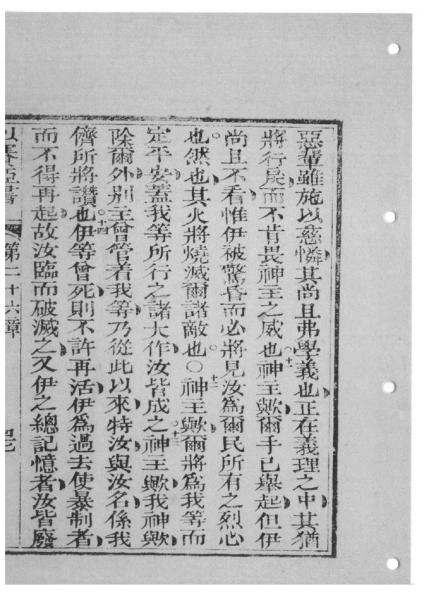 惡輩雖施以慈憐其尚且弗學義也正在義理之中其猶
將行戾而不肯畏神主之威也○十一神主歟爾手已舉起但伊
尚且不看惟伊被驚昏而必將見汝為爾民所有之烈心
也然也其火將燒滅爾諸敵也○十二神主歟爾將為我等而
定平安蓋我等所行之諸大作汝皆成之○十三神主歟我神歟
除爾外別主曾管着我等乃從此以來特汝與汝名係我
儕所將讚也○十四伊等曾死則不許再活伊為過去使暴制者
而不得再起故汝臨而破滅之又伊之總記憶者汝皆廢
以賽亞書 第二十六章